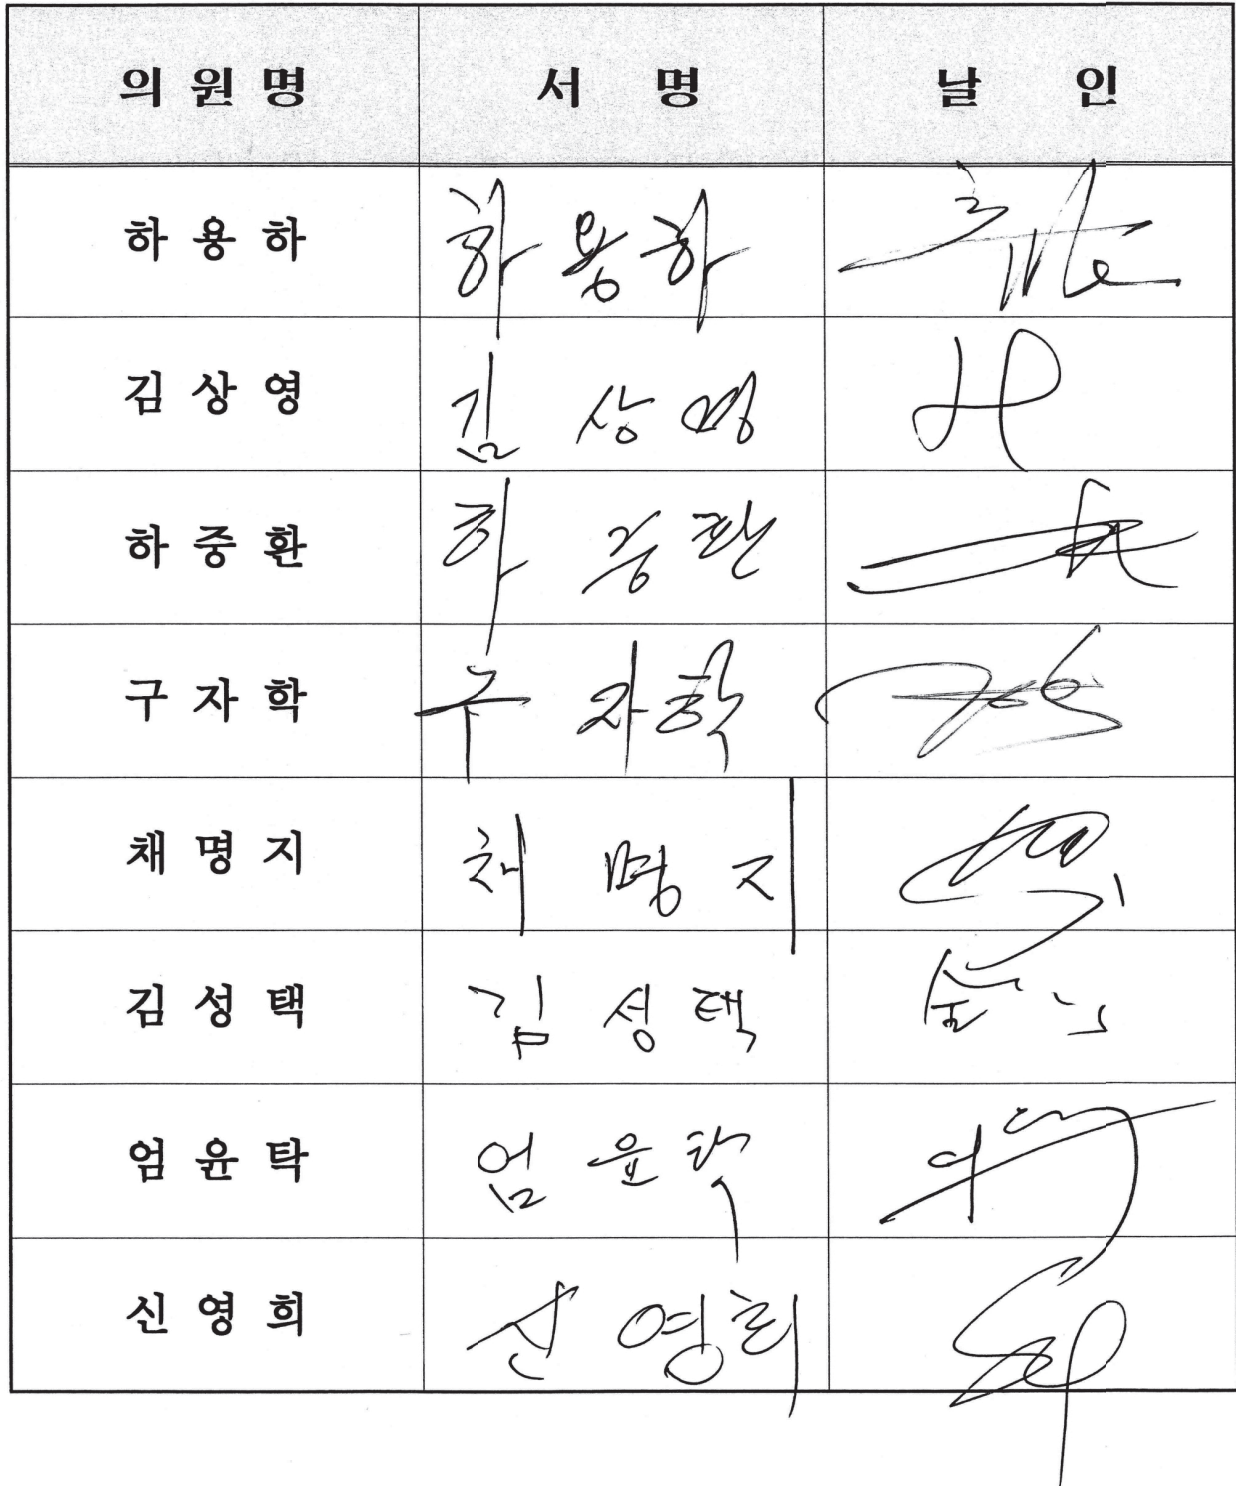 의 원 명 서 명 날 인
하 용 하 하 용 하
김 상 영 김 상 영
하 중 환 하 중 환
구 자 학 구 자 학
채 명 지 채 명 지
김 성 택 김 성 택
엄 윤 탁 엄 윤 탁
신 영 희 신 영 희